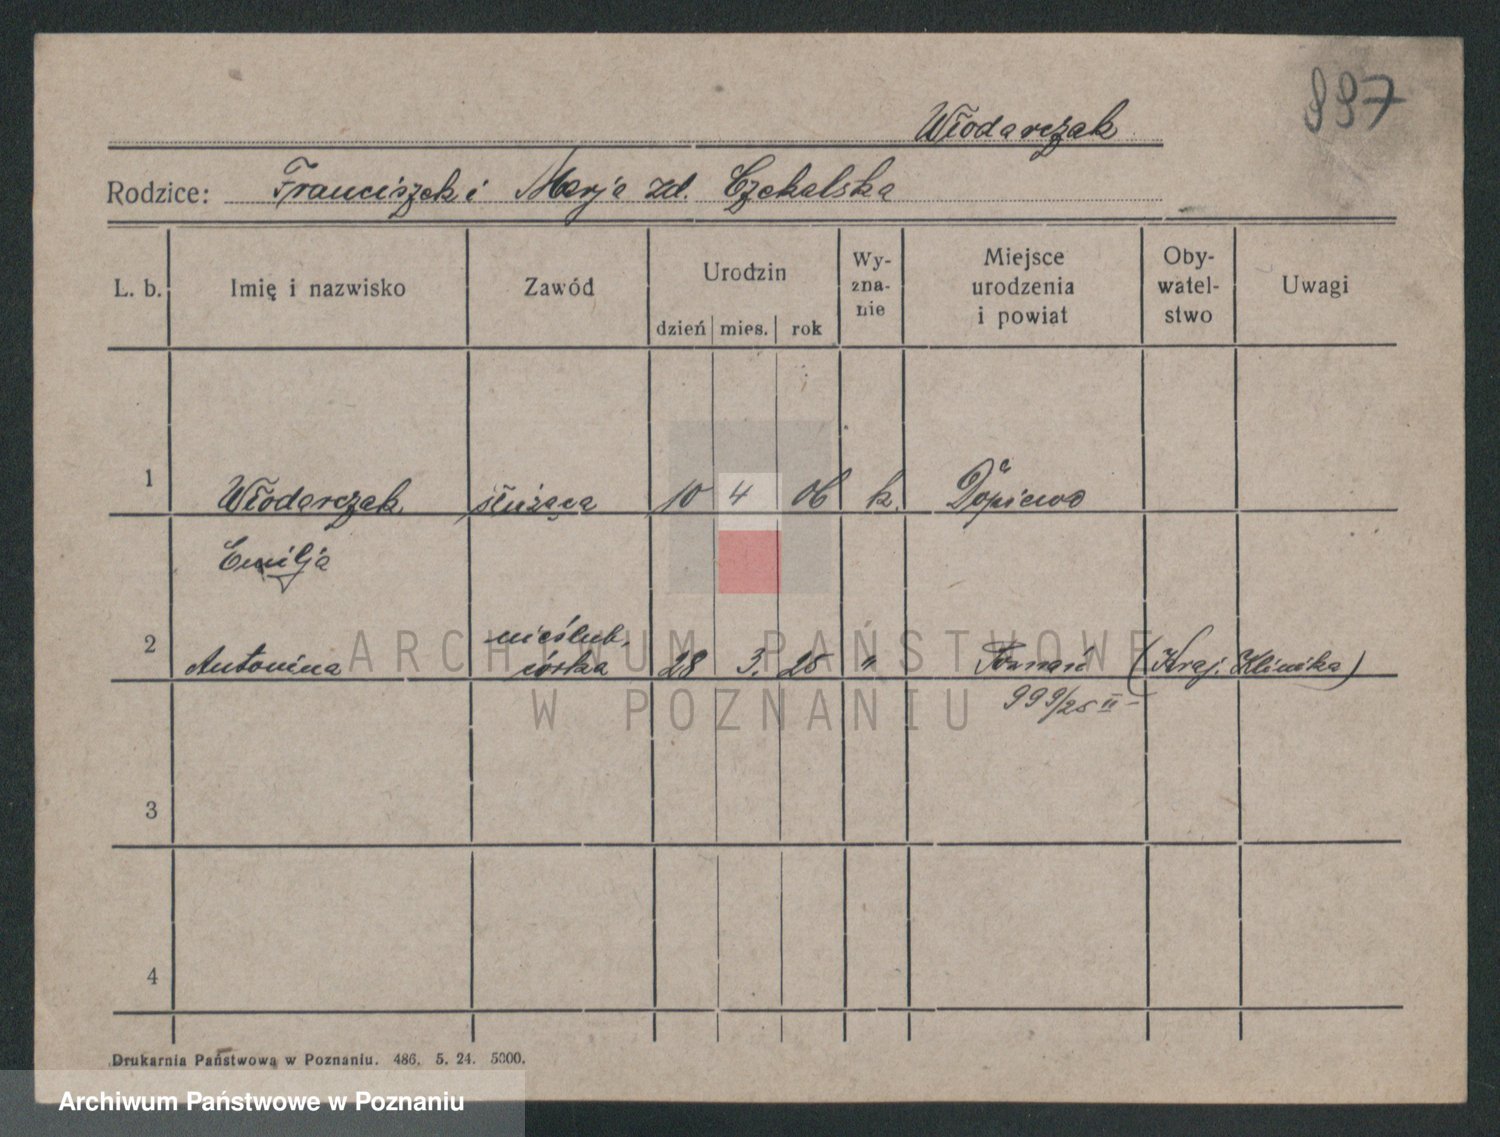 997
Włodarczak
Rodzice: Franciszek i Marja zd. Czekalska
L. b. Imię i nazwisko Zawód Urodzin Wy-zna-nie Miejsce urodzenia i powiat Oby-watel-stwo Uwagi
dzień mies. rok
1 Włodarczak służąca 10 4 06 k. Dopiewo
Emilja
nieślub.
2 Antonina córka 28 3. 25 " Poznań (Kraj. Klinika)
999/25 II
3
4
ARCHIWUM PAŃSTWOWE
W POZNANIU
Drukarnia Państwowa w Poznaniu. 486. 5. 24. 5000.
Archiwum Państwowe w Poznaniu